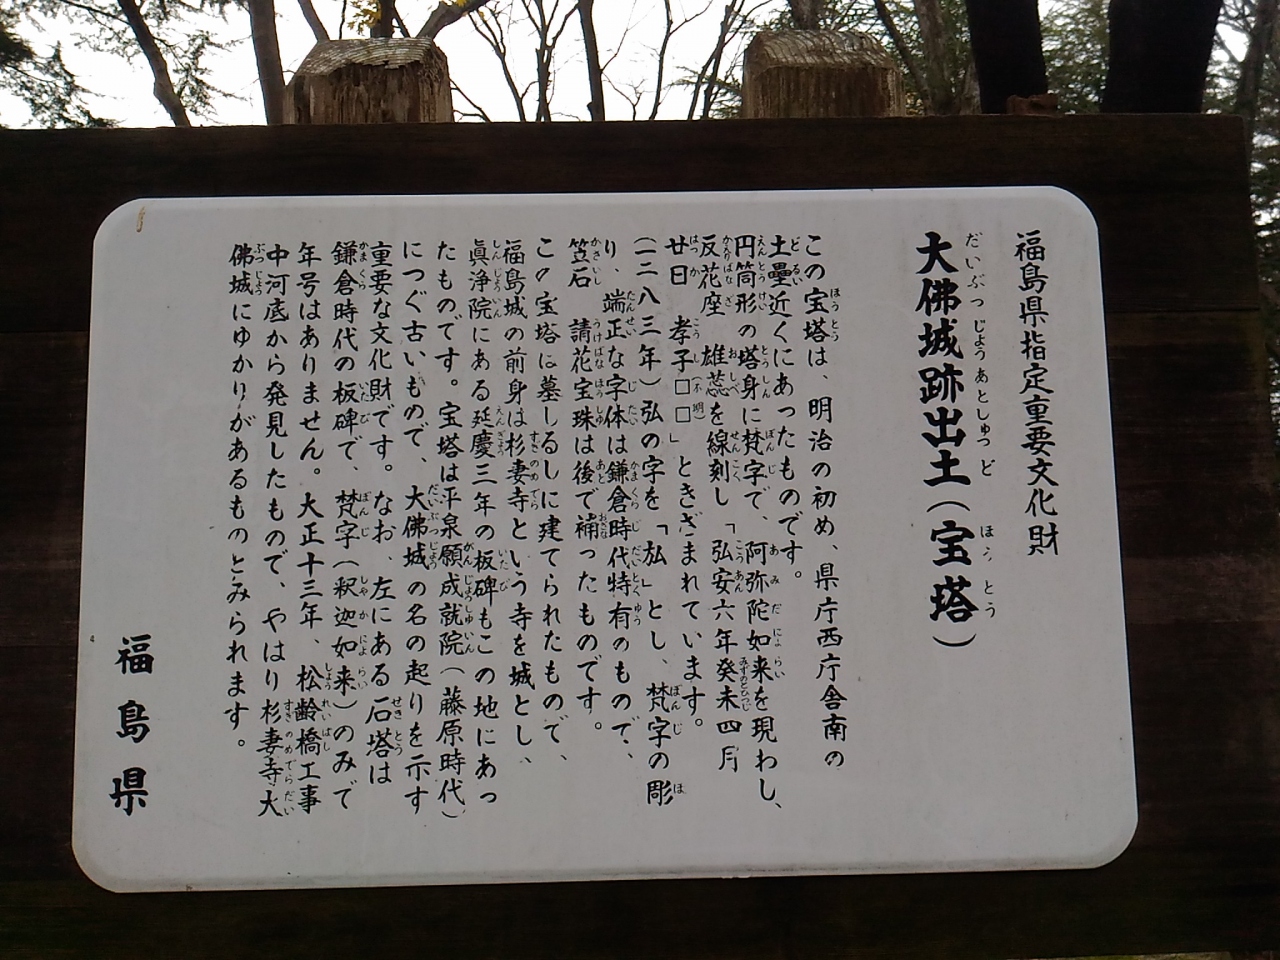 福島県指定重要文化財
大佛城跡出土(宝塔)
この宝塔は、明治の初め、県庁西庁舎南の
土壘近くにあったものです。
円筒形の塔身に梵字で、阿弥陀如来を現わし、
反花座 雄蕊を線刻し「弘安六年癸未四月
廿日 孝子□□」ときざまれています。
(一二八三年)弘の字を「厷」とし、梵字の彫
り、端正な字体は鎌倉時代特有のもので、
笠石 請花宝珠は後で補ったものです。
この宝塔は墓しるしに建てられたもので、
福島城の前身は杉妻寺という寺を城とし、
眞浄院にある延慶三年の板碑もこの地にあっ
たものです。宝塔は平泉願成就院(藤原時代)
につぐ古いもので、大佛城の名の起りを示す
重要な文化財です。なお、左にある石塔は
鎌倉時代の板碑で、梵字(釈迦如来)のみで
年号はありません。大正十三年、松齢橋工事
中河底から発見したもので、やはり杉妻寺大
佛城にゆかりがあるものとみられます。
福島県